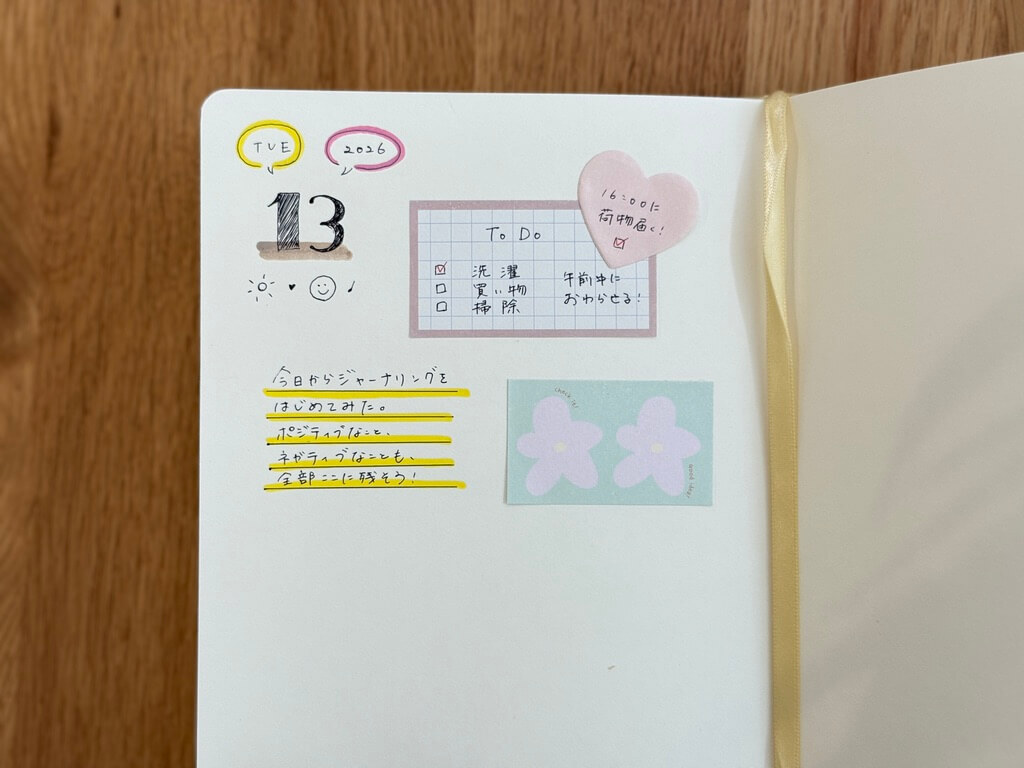 TUE
2026
13
16:00に
荷物届く!
To Do
洗濯
買い物
掃除
午前中に
おわらせる!
今日からジャーナリングを
はじめてみた。
ポジティブなこと、
ネガティブなことも、
全部ここに残そう!